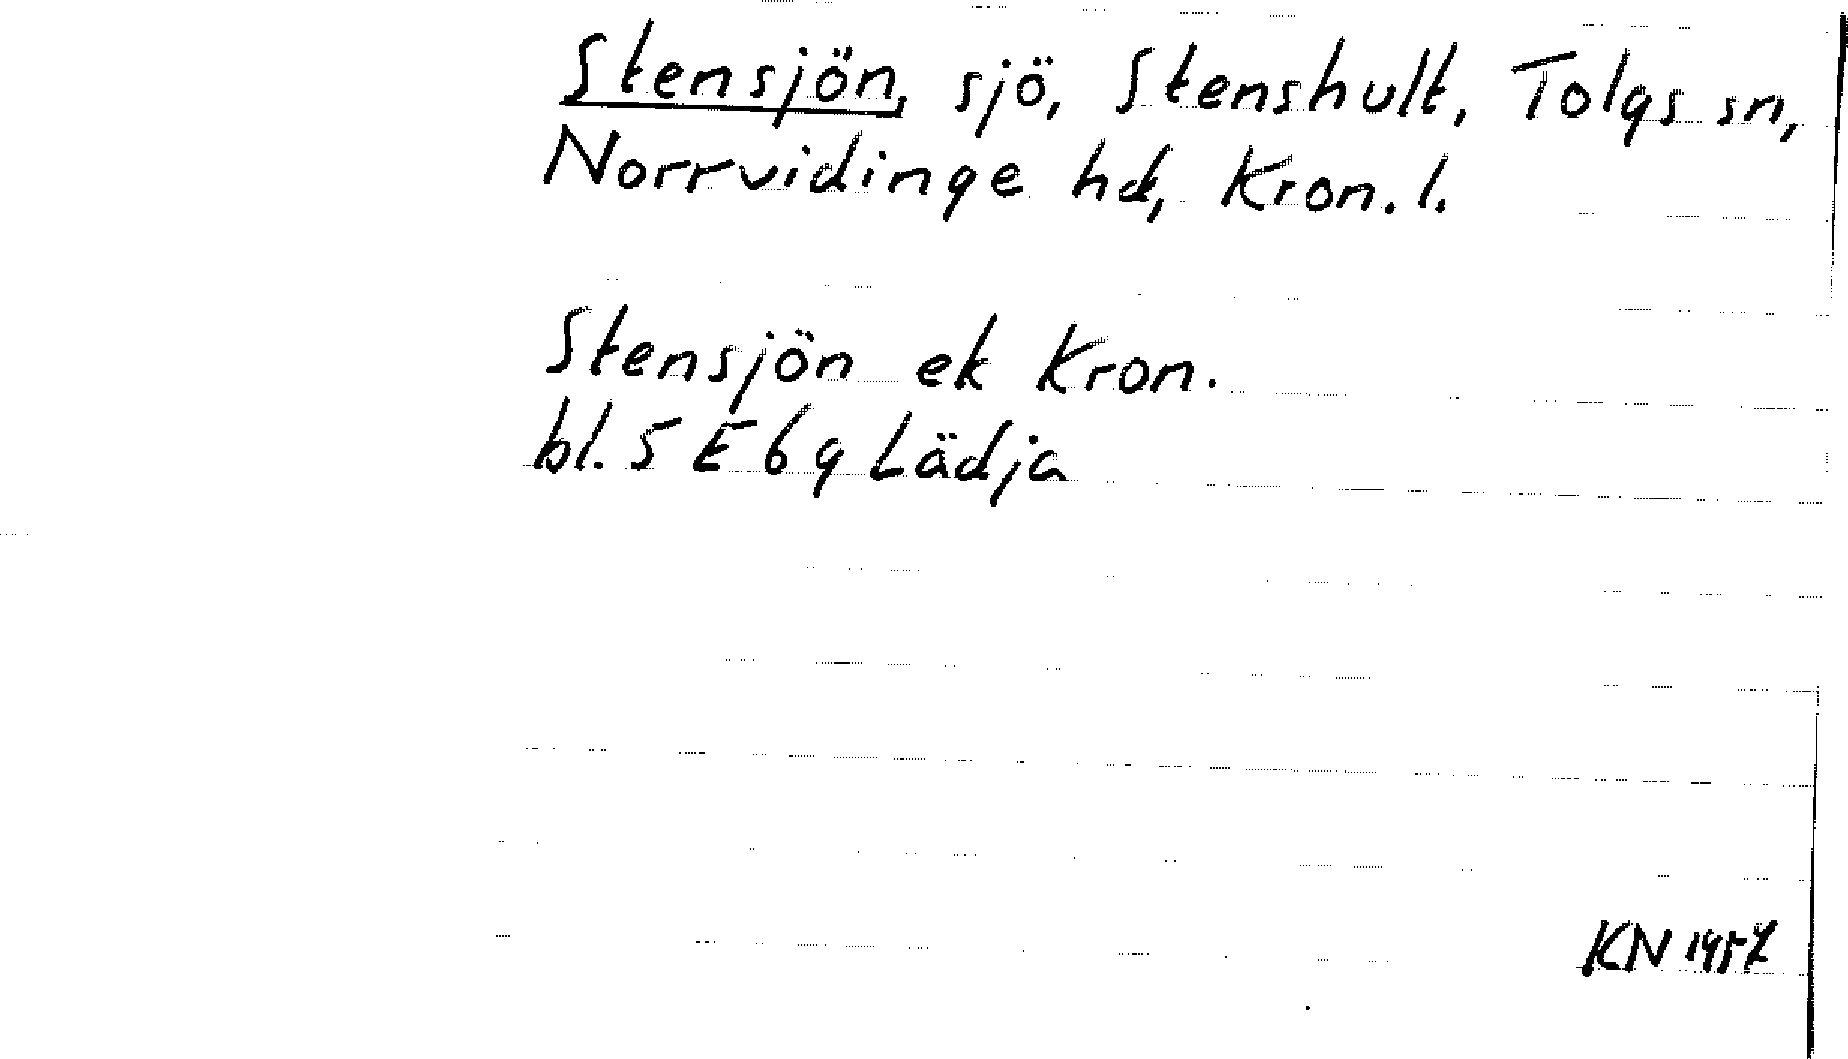 Stensjön, sjö, Stenshult, Tolgs sn,
Norrvidinge hd, Kron. l.
Stensjön ek Kron.
bl. 5 E 6 g Lädja
KN 1957